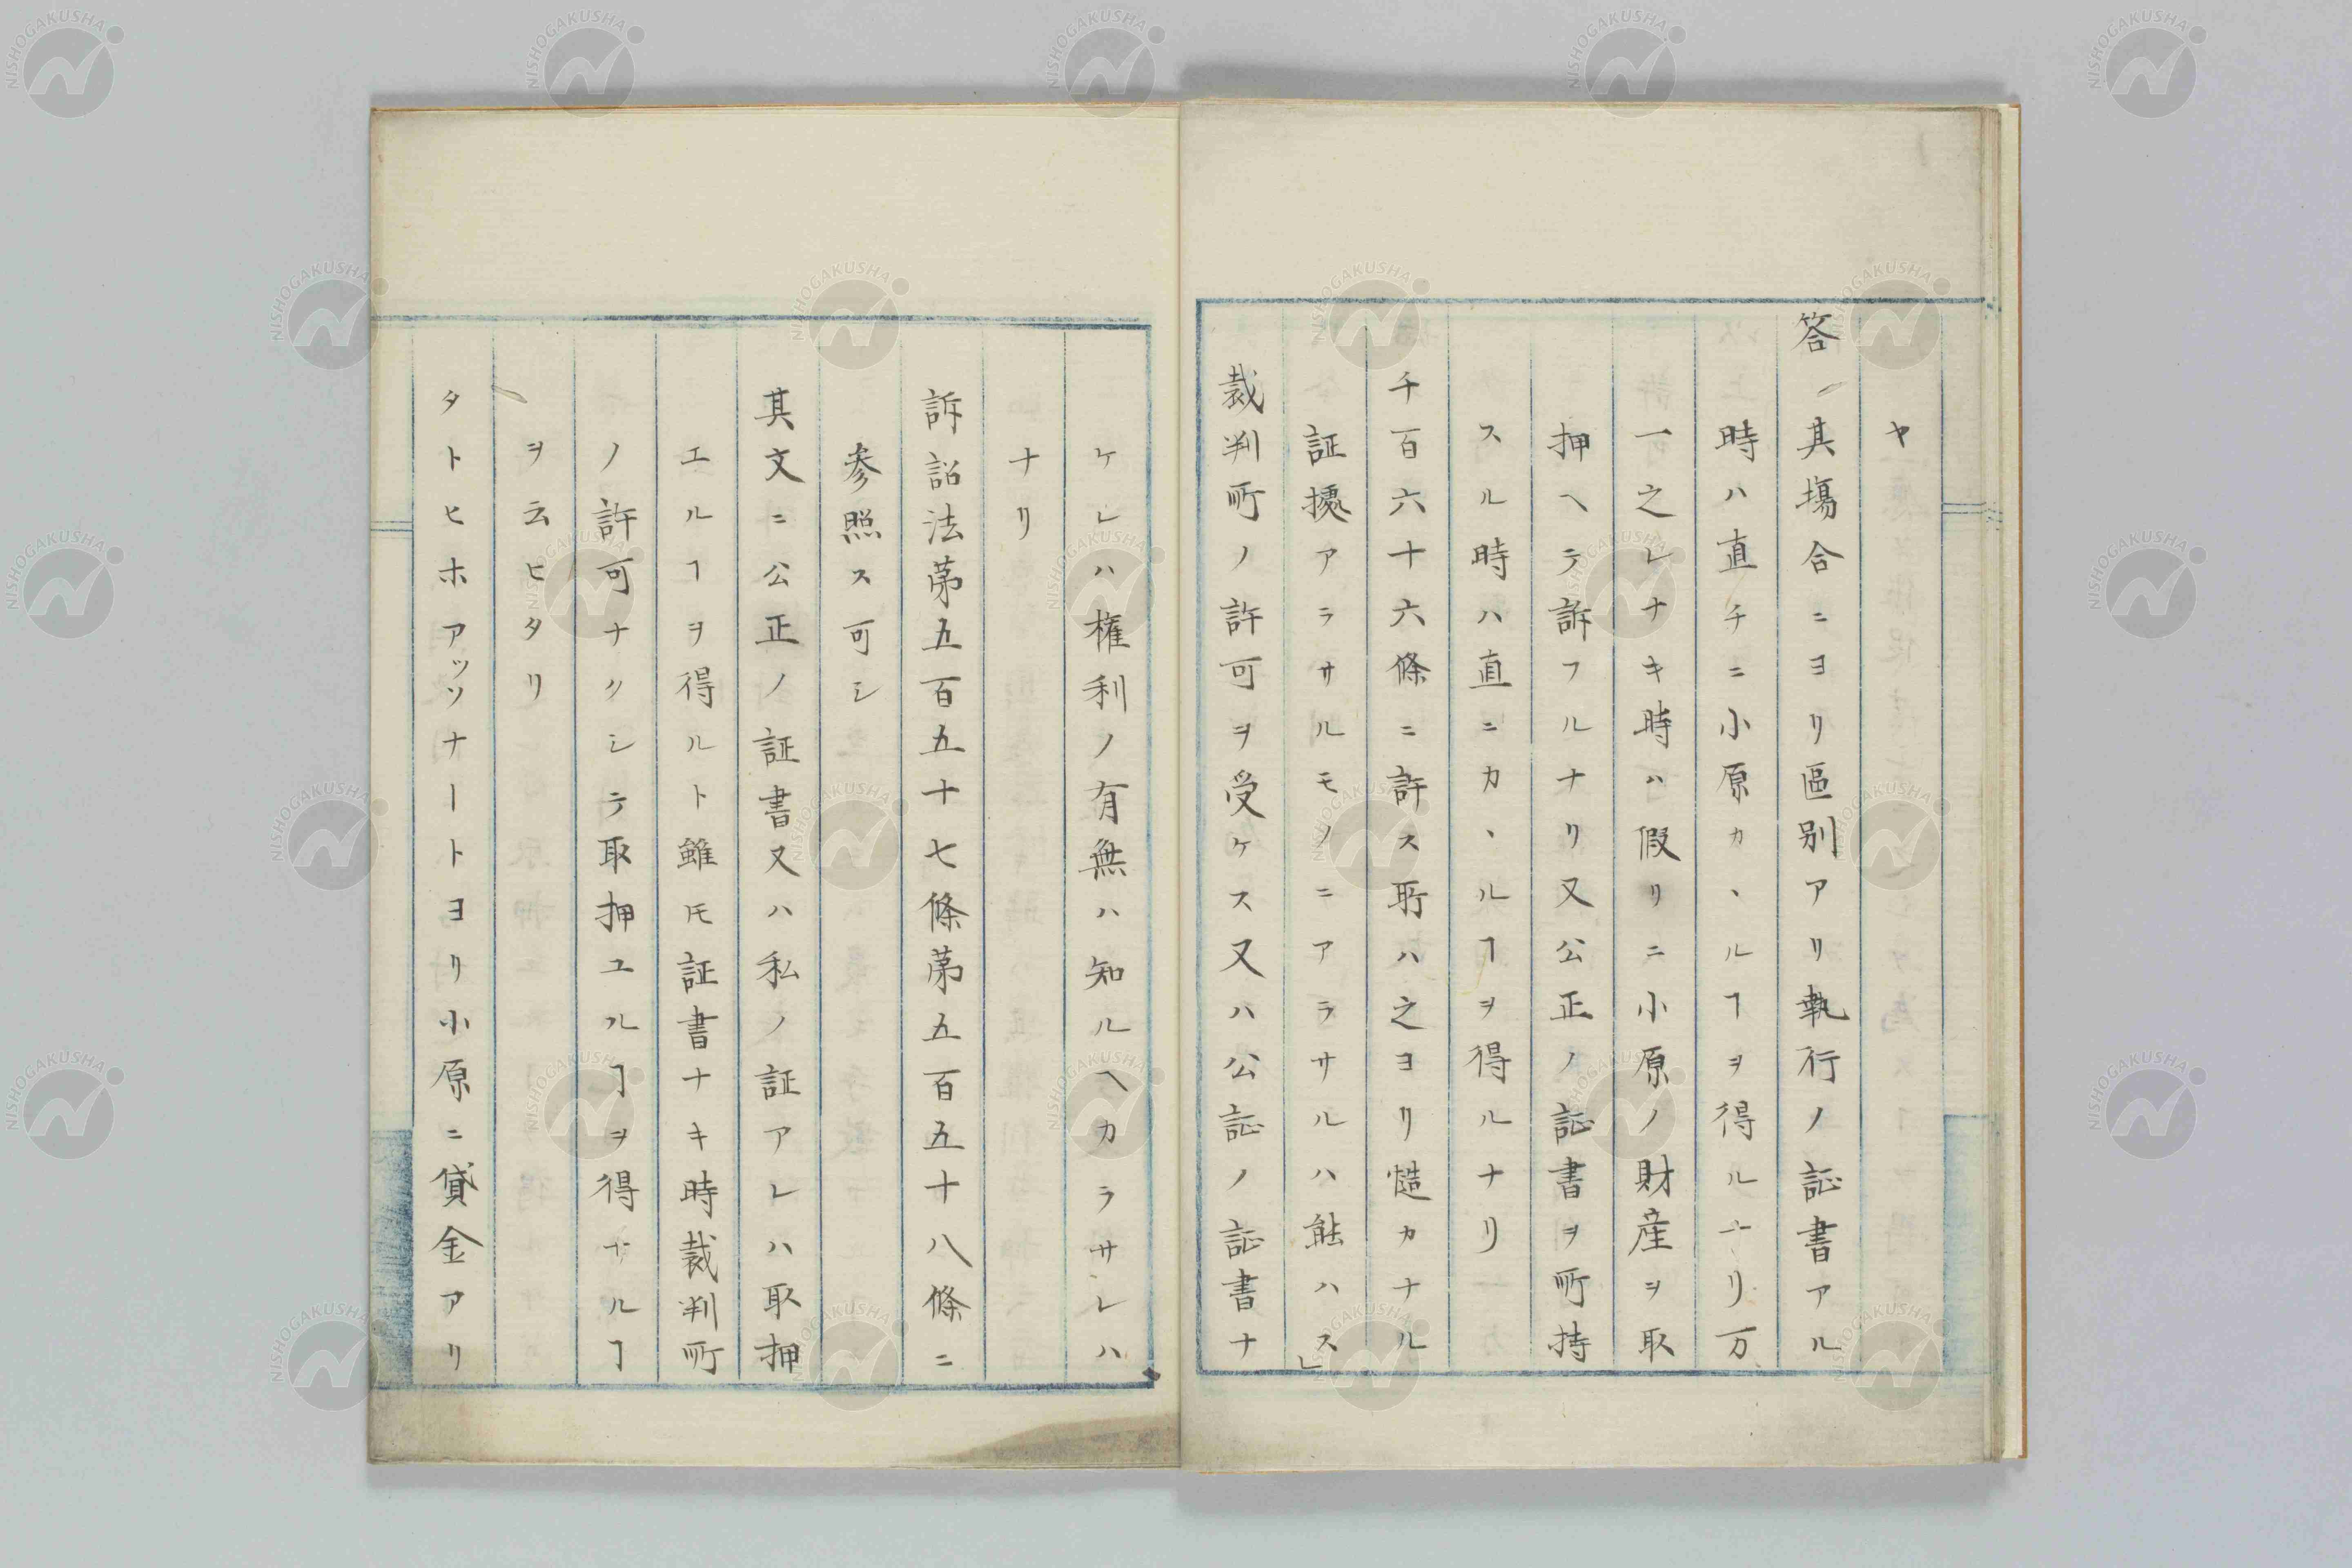 ヤ
答 其場合ニヨリ區別アリ執行ノ証書アル
時ハ直チニ小原カヽルヿヲ得ルナリ万
一之レナキ時ハ假リニ小原ノ財産ヲ取
押ヘテ訴フルナリ又公正ノ証書ヲ所持
スル時ハ直ニカヽルヿヲ得ルナリ
千百六十六條ニ許ス所ハ之ヨリ慥カナル
証㨿アラサルモノニアラサルハ能ハス」
裁判所ノ許可ヲ受ケス又ハ公証ノ証書ナ
ケレハ権利ノ有無ハ知ルヘカラサレハ
ナリ
訴訟法第五百五十七條第五百五十八條ニ
参照ス可シ
其文ニ公正ノ証書又ハ私ノ証アレハ取押
エルヿヲ得ルト雖モ証書ナキ時裁判所
ノ許可ナクシテ取押ユルヿヲ得サルヿ
ヲ云ヒタリ
タトヒホアッソナートヨリ小原ニ貸金アリ
NISHOGAKUSHA